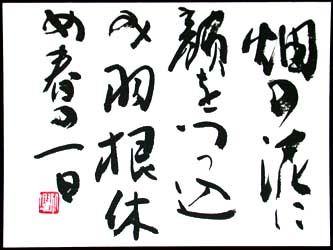 畑の泥に
顔をつっ込
み羽根休
め春の一日